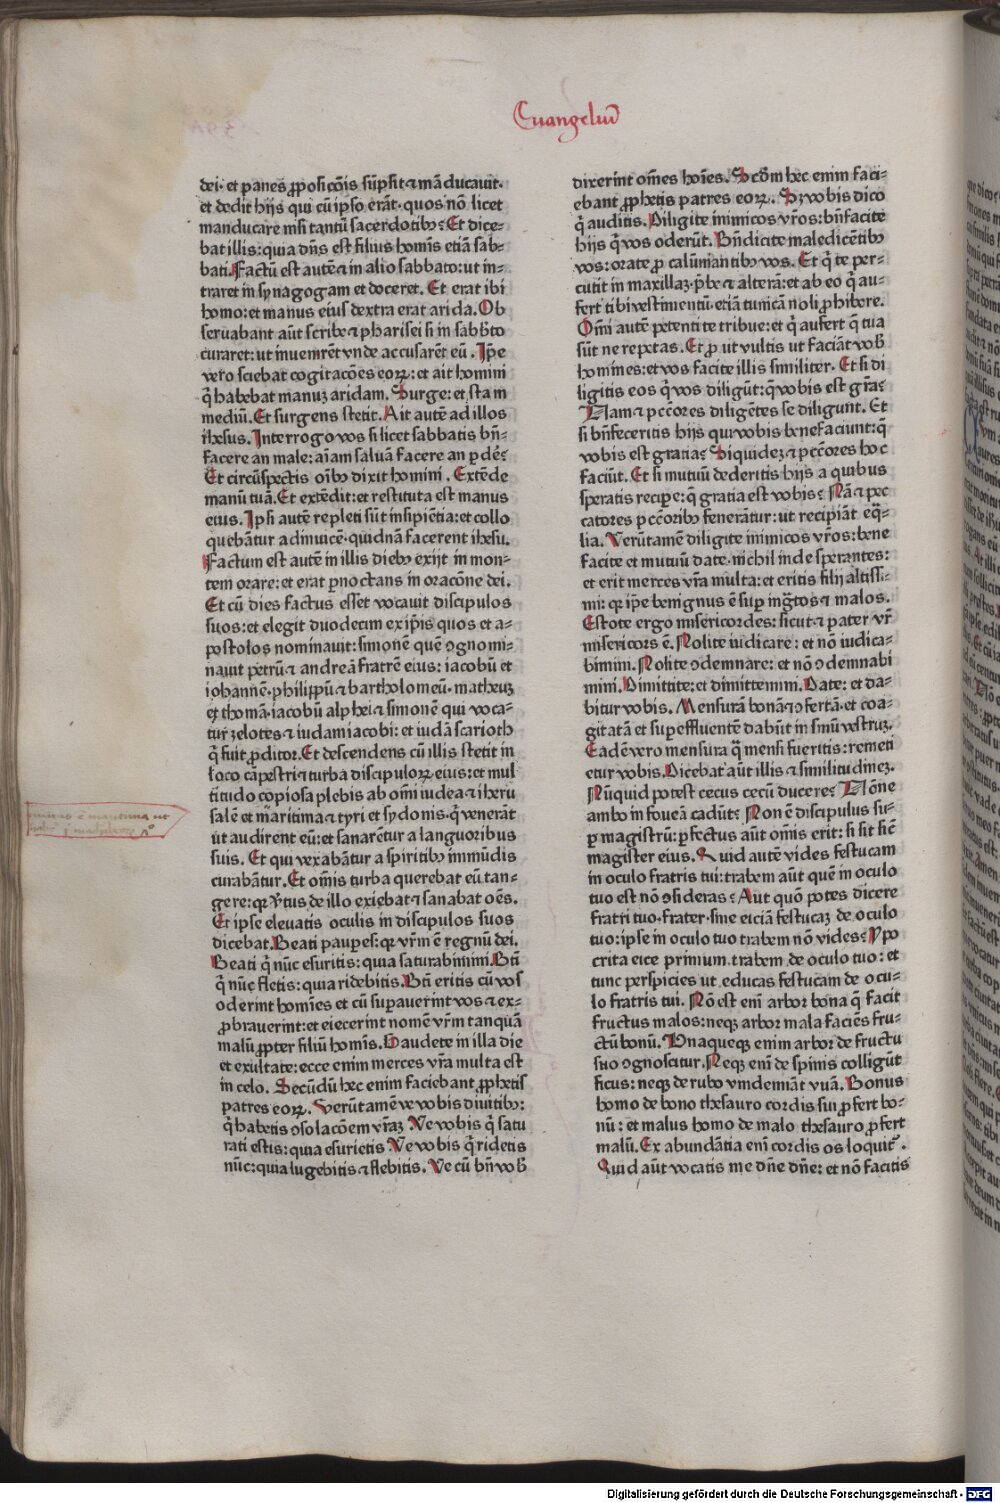 Euangeliū
dei· et panes ꝓposicōis sūpsit ⁊ māducauit·
et dedit hijs qui cū ipso erāt· quos nō licet
manducare nisi tantū sacerdotibꝰ? Et dice⸗
bat illis: quia dn̄s est filius homīs etiā sab⸗
bati. Factū est autē ⁊ in alio sabbato: ut in⸗
traret in synagogam et doceret. Et erat ibi
homo: et manus eius dextra erat arida. Ob
seruabant aūt scribe ⁊ pharisei si in sabb̄to
curaret: ut inuenirēt vnde accusarēt eū. Ip̄e
vero sciebat cogitacōes eoꝝ: et ait homini
q̄ habebat manuꝫ aridam. Surge: et sta in
mediū. Et surgens stetit. Ait autē ad illos
ihesus. Interrogo vos si licet sabbatis bn̄⸗
facere an male: aīam saluā facere an ꝑdē?
Et circūspectis oībꝰ dixit homini. Extēde
manū tuā. Et extēdit: et restituta est manus
eius. Ipsi autē repleti sūt insipiētia: et collo
quebātur adinuicē· quidnā facerent ihesu.
Factum est autē in illis diebꝰ exijt in mon⸗
tem orare: et erat ꝑnoctans in oracōne dei.
Et cū dies factus esset vocauit discipulos
suos: et elegit duodecim ex ip̄is quos et a⸗
postolos nominauit: simonē quē ꝯgnomi⸗
nauit petrū ⁊ andreā fratrē eius: iacobū et
iohannē· philippū ⁊ bartholomeū· matheuꝫ
et thomā· iacobū alphei ⁊ simonē qui voca⸗
tur zelotes ⁊ iudam iacobi: et iudā scarioth
q̄ fuit ꝓditor. Et descendens cū illis stetit in
loco cāpestri ⁊ turba discipuloꝝ eius: et mul
titudo copiosa plebis ab om̄i iudea ⁊ iheru
salē et maritima ⁊ tyri et sydonis· q̄ venerāt
ut audirent eū: et sanarētur a languoribus
suis. Et qui vexabātur a spiritibꝰ immūdis
curabātur. Et om̄is turba querebat eū tan⸗
gere: qꝛ v̄tus de illo exiebat ⁊ sanabat oēs.
Et ipse eleuatis oculis in discipulos suos
dicebat. Beati pauꝑes: qꝛ vr̄m ē regnū dei.
Beati q̄ nūc esuritis: quia saturabimini. Bt̄i
q̄ nūc fletis: quia ridebitis. Bt̄i eritis cū vos
oderint homīes et cū seꝑauerint vos ⁊ ex⸗
ꝓbrauerint: et eiecerint nomē vr̄m tanquā
malū ꝓpter filiū homīs. Gaudete in illa die
et exultate: ecce enim merces vr̄a multa est
in celo. Secūdū hec enim faciebant ꝓphetis
patres eoꝝ. Verūtamē ve vobis diuitibꝰ:
q̄ habetis ꝯsolacōem vr̄aꝫ Ve vobis q̄ satu
rati estis: quia esurietis Ve vobis q̄ ridetis
nūc: quia lugebitis ⁊ flebitis. Ve cū bn̄ vob̄
dixerint om̄es hoīes. Scd̄m hec enim faci⸗
ebant ꝓphetis patres eoꝝ. Sꝫ vobis dico
q̄ auditis. Diligite inimicos vr̄os: bn̄facite
hijs q̄ vos oderūt. Bn̄dicite maledicētibꝰ
vos: orate ꝓ calūniantibꝰ vos. Et q̄ te per⸗
cutit in maxillaꝫ· p̄be ⁊ alterā: et ab eo q̄ au⸗
fert tibi vestimentū· etiā tunicā noli ꝓhibere.
Om̄i autē petenti te tribue: et q̄ aufert q̄ tua
sūt ne repetas. Et ꝓut vultis ut faciāt vob̄
homines: et vos facite illis similiter. Et si di
ligitis eos q̄ vos diligūt: q̄ vobis est gr̄a?
Nam ⁊ pccōres diligētes se diligunt. Et
si bn̄feceritis hijs qui vobis benefaciunt: q̄
vobis est gratia? Siquidez ⁊ pccōres hoc
faciūt. Et si mutuū dederitis hijs a quibus
speratis recipe: q̄ gratia est vobis? Nā ⁊ pec
catores pccōribꝰ fenerātur: ut recipiāt eq̄⸗
lia. Verūtamē diligite inimicos vr̄os: bene
facite et mutuū date· nichil inde sperantes:
et erit merces vr̄a multa: et eritis filij altissi⸗
mi: qꝛ ip̄e benignus ē suꝑ ingr̄tos ⁊ malos.
Estote ergo misericordes: sicut ⁊ pater vr̄
misericors ē. Nolite iudicare: et nō iudica⸗
bimini. Nolite ꝯdemnare: et nō ꝯdemnabi
mini. Dimittite: et dimittemini. Date: et da⸗
bitur vobis. Mensurā bonā ⁊ ꝯfertā· et coa⸗
gitatā et suꝑeffluentē dabūt in sinū vestruꝫ.
Eadē vero mensura q̄ mensi fueritis: remeti
etur vobis. Dicebat aūt illis ⁊ similitudineꝫ.
Nūquid potest cecus cecū ducere? Nōne
ambo in foueā cadūt? Non ē discipulus su⸗
ꝑ magistrū: ꝑfectus aūt om̄is erit: si sit sic̄
magister eius. Quid autē vides festucam
in oculo fratris tui: trabem aūt quē in oculo
tuo est nō ꝯsideras? Aut quō potes dicere
fratri tuo· frater· sine eiciā festucaꝫ de oculo
tuo: ipse in oculo tuo trabem nō vides? Ypo
crita eice primium trabem de oculo tuo: et
tunc perspicies ut educas festucam de ocu⸗
lo fratris tui. Nō est enī arbor bona q̄ facit
fructus malos: neqꝫ arbor mala faciēs fru⸗
ctū bonū. Vnaqueqꝫ enim arbor de fructu
suo ꝯgnoscitur. Neqꝫ enī de spinis colligūt
ficus: neqꝫ de rubo vindemiāt vuā. Bonus
homo de bono thesauro cordis sui ꝓfert bo⸗
nū: et malus homo de malo thesauro ꝓfert
malū. Ex abundātia enī cordis os loquit̄.
Quid aūt vocatis me dn̄e dn̄e: et nō facitis
Digitalisierung gefördert durch die Deutsche Forschungsgemeinschaft - DFG